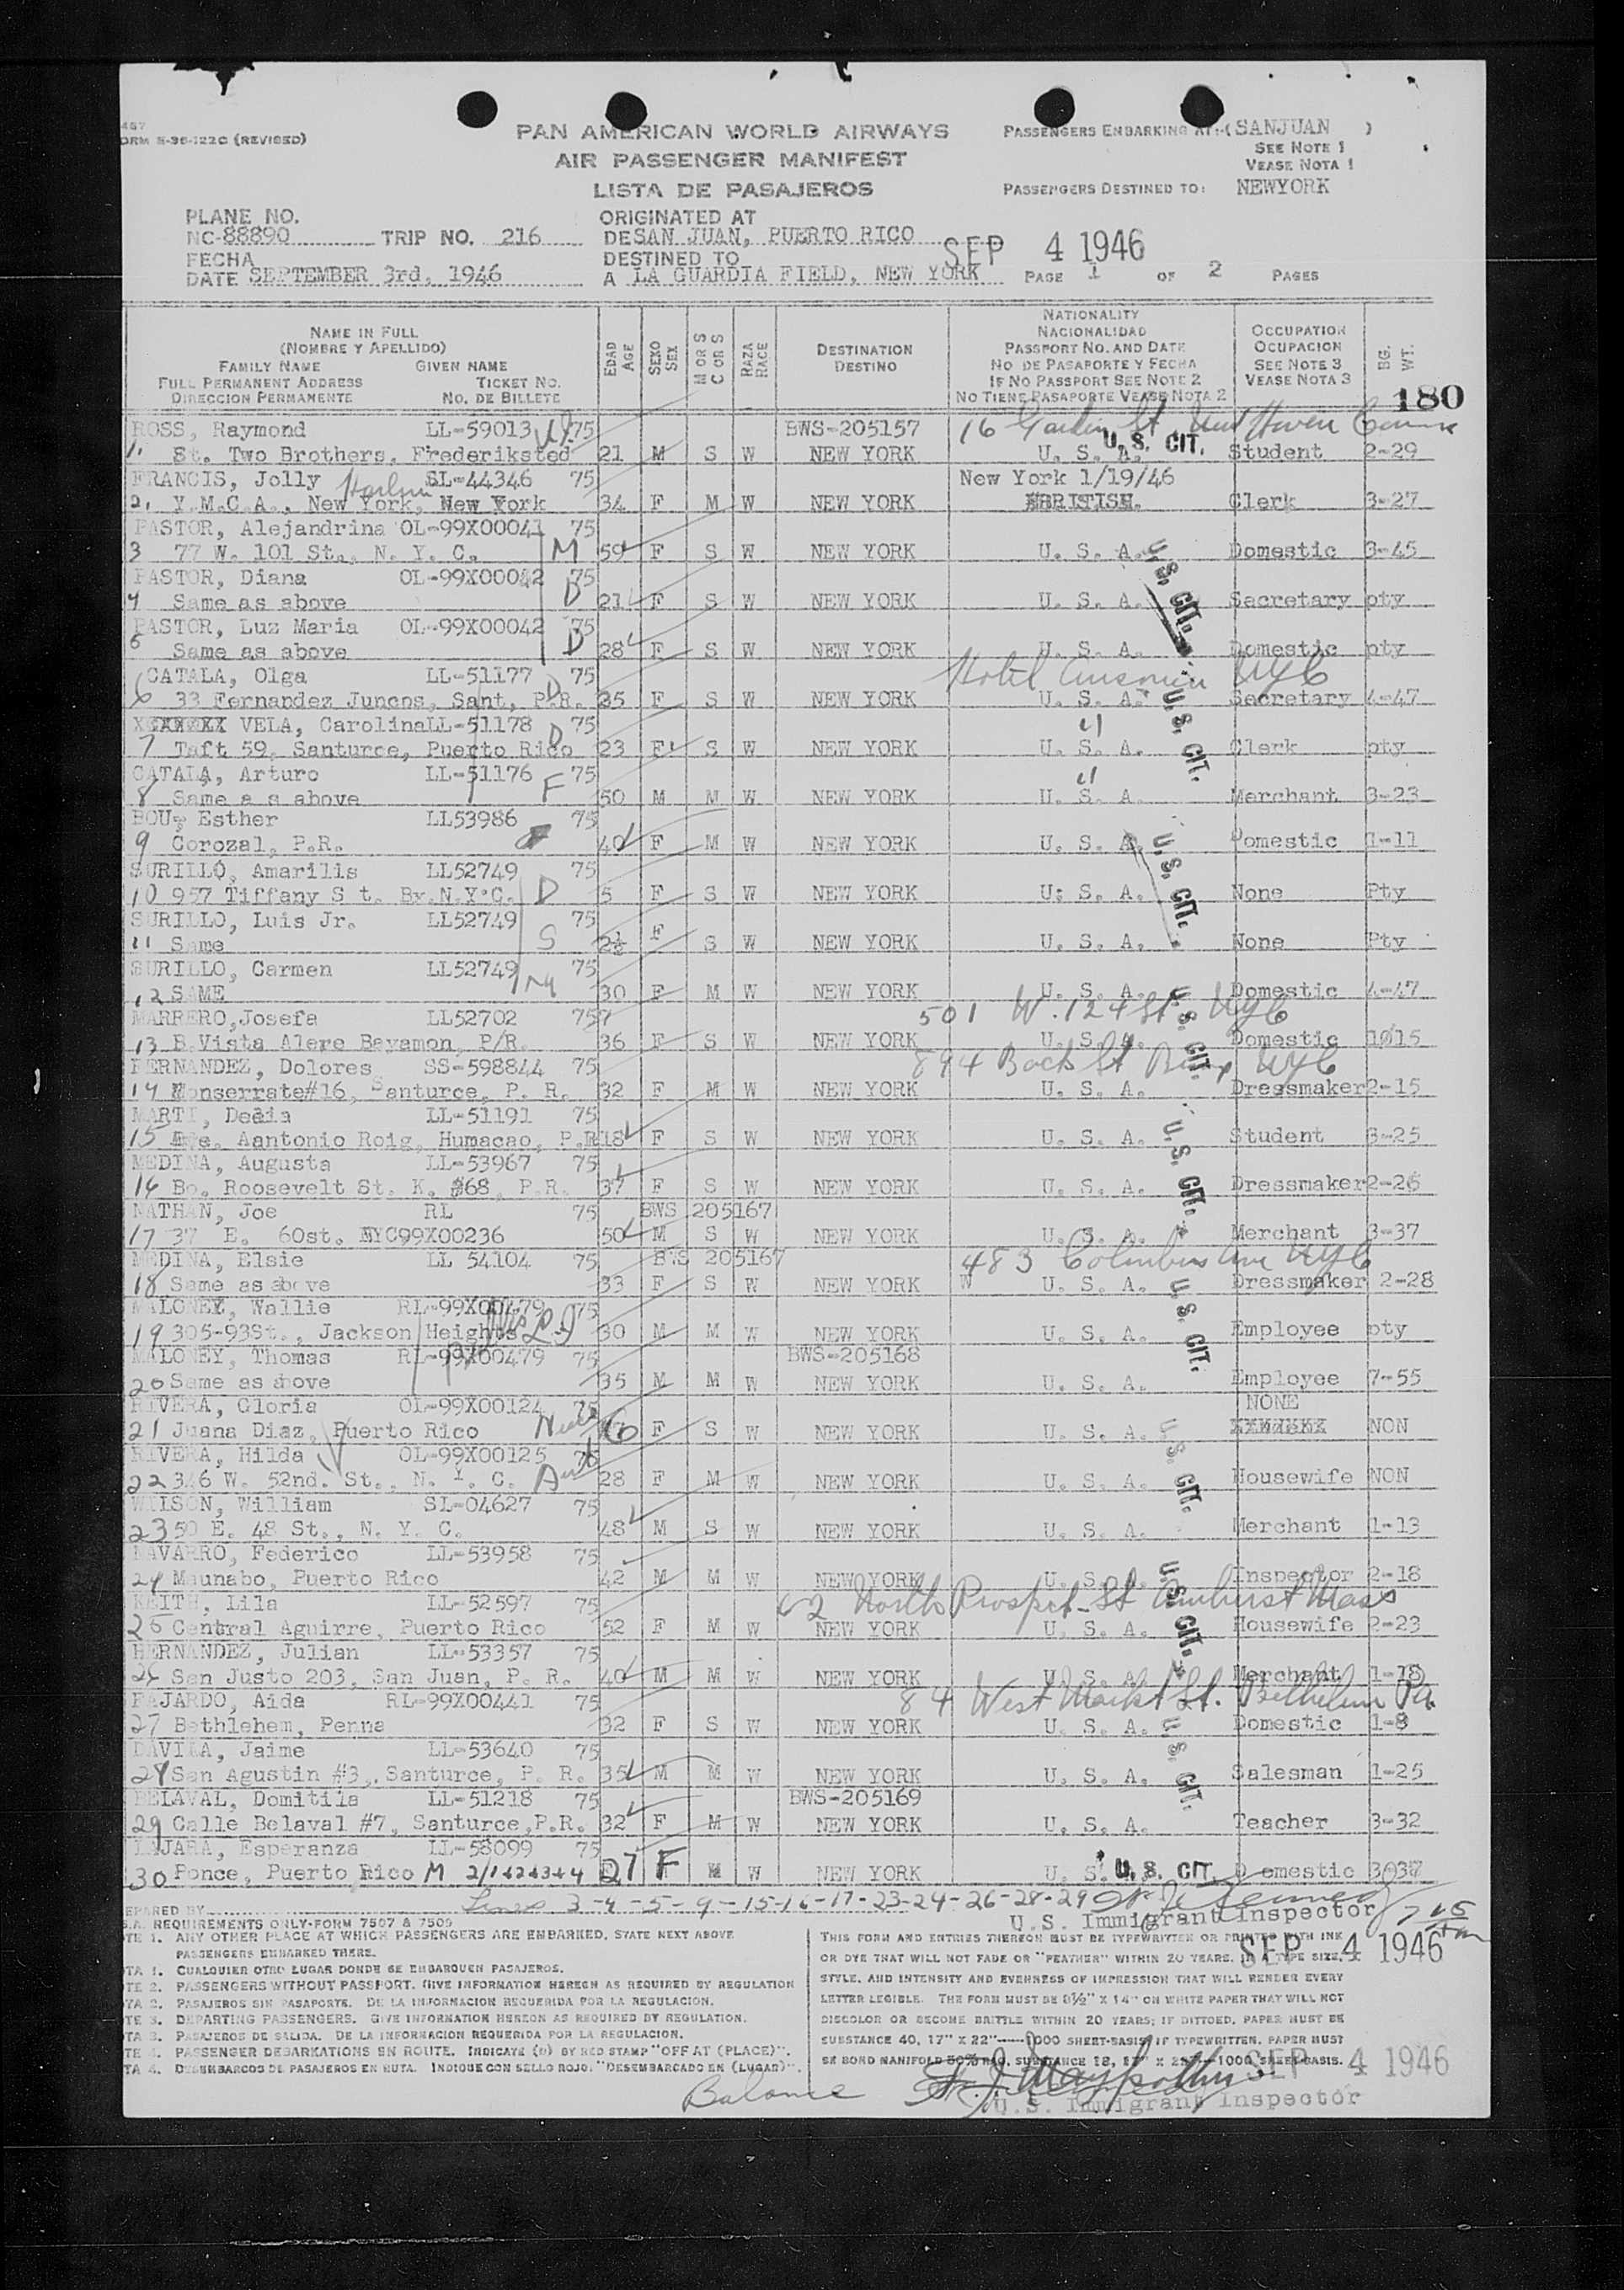 457
ORM S-36-122C (REVISED)
PAN AMERICAN WORLD AIRWAYS
AIR PASSENGER MANIFEST
LISTA DE PASAJEROS
PASSENGERS EMBARKING AT:-(SANJUAN )
SEE NOTE 1
VEASE NOTA 1
PASSENGERS DESTINED TO: NEWYORK
PLANE NO. ORIGINATED AT
NC-88890 TRIP NO. 216 DE SAN JUAN, PUERTO RICO SEP 4 1946
FECHA DESTINED TO
DATE SEPTEMBER 3rd, 1946 A LA GUARDIA FIELD, NEW YORK PAGE 1 OF 2 PAGES
NAME IN FULL
(NOMBRE Y APELLIDO)
FAMILY NAME GIVEN NAME
FULL PERMANENT ADDRESS TICKET NO.
DIRECCION PERMANENTE NO. DE BILLETE
EDAD AGE
SEXO SEX
M OR S C OR S
RAZA RACE
DESTINATION
DESTINO
NATIONALITY
NACIONALIDAD
PASSPORT NO. AND DATE
NO DE PASAPORTE Y FECHA
IF NO PASSPORT SEE NOTE 2
NO TIENE PASAPORTE VEASE NOTA 2
OCCUPATION
OCUPACION
SEE NOTE 3
VEASE NOTA 3
BG. WT.
180
ROSS, Raymond LL-59013 75 BWS-205157 16 Garden St New Haven Conn
1. St. Two Brothers, Frederiksted 21 M S W NEW YORK U. S. A. U. S. CIT. Student 2-29
FRANCIS, Jolly SL-44346 75 New York 1/19/46
2. Y.M.C.A., Harlem New York, New York 34 F M W NEW YORK BRITISH. Clerk 3-27
PASTOR, Alejandrina OL-99X00041 75
3 77 W. 101 St., N. Y. C. M 59 F S W NEW YORK U. S. A. Domestic 3-45
PASTOR, Diana OL-99X00042 75
4 Same as above D 21 F S W NEW YORK U. S. A. U. S. CIT. Secretary pty
PASTOR, Luz Maria OL-99X00042 75
5 Same as above D 28 F S W NEW YORK U. S. A. Domestic pty
CATALA, Olga LL-51177 75 Hotel Ansonia NYC
6 33 Fernandez Juncos, Sant, P.R. D 25 F S W NEW YORK U. S. A. Secretary 4-47
VELA, Carolina LL-51178 75 "
7 Taft 59, Santurce, Puerto Rico D 23 F S W NEW YORK U. S. A. U. S. CIT. Clerk pty
CATALA, Arturo LL-51176 75 "
8 Same a s above F 50 M M W NEW YORK U. S. A. Merchant 3-23
BOU, Esther LL53986 75
9 Corozal, P.R. 40 F M W NEW YORK U. S. A. Domestic 1-11
SURILLO, Amarilis LL52749 75
10 957 Tiffany S t. Bx.N.Y.C. D 5 F S W NEW YORK U. S. A. U. S. CIT. None Pty
SURILLO, Luis Jr. LL52749 75
11 Same S 2½ F S W NEW YORK U. S. A. None Pty
SURILLO, Carmen LL52749 75
12 SAME M 30 F M W NEW YORK U. S. A. Domestic 4-47
MARRERO,Josefa LL52702 75 501 W. 124 St. NYC
13 B.Vista Alere Bayamon, P/R. 36 F S W NEW YORK U. S. A. U. S. CIT. Domestic 1015
FERNANDEZ, Dolores SS-598844 75 894 Beck St Bronx NYC
14 Monserrate#16, Santurce, P. R. 32 F M W NEW YORK U. S. A. Dressmaker 2-15
MARTI, Delia LL-51191 75
15 Ave. Aantonio Roig, Humacao, P.R 18 F S W NEW YORK U. S. A. Student 3-25
MEDINA, Augusta LL-53967 75
16 Bo. Roosevelt St. K. #68, P.R. 37 F S W NEW YORK U. S. A. U. S. CIT. Dressmaker 2-26
NATHAN, Joe RL 75 BWS 205167
17 37 E. 60st. NYC99X00236 50 M S W NEW YORK U. S. A. Merchant 3-37
MEDINA, Elsie LL 54104 75 BWS 205167 483 Columbus Ave NYC
18 Same as above 33 F S W NEW YORK W U. S. A. Dressmaker 2-28
MALONEY, Wallie RL-99X00479 75
19 305-93St., Jackson Heights 30 M M W NEW YORK U. S. A. U. S. CIT. Employee pty
MALONEY, Thomas RL-99X00479 75 BWS-205168
20 Same as above 35 M M W NEW YORK U. S. A. Employee 7-55
RIVERA, Gloria OL-99X00124 75 NONE
21 Juana Diaz, Puerto Rico Niece 16 F S W NEW YORK U. S. A. NON
RIVERA, Hilda OL-99X00125 75
22 346 W. 52nd. St., N. Y. C. Aunt 28 F M W NEW YORK U. S. A. U. S. CIT. Housewife NON
WILSON, William SL-04627 75
23 50 E. 48 St., N. Y. C. 48 M S W NEW YORK U. S. A. Merchant 1-13
NAVARRO, Federico LL-53958 75
24 Maunabo, Puerto Rico 42 M M W NEW YORK U. S. A. Inspector 2-18
KEITH, Lila LL-52597 75 62 North Prospect St Amherst Mass
25 Central Aguirre, Puerto Rico 52 F M W NEW YORK U. S. A. U. S. CIT. Housewife 2-23
HERNANDEZ, Julian LL-53357 75
26 San Justo 203, San Juan, P. R. 40 M M W NEW YORK U. S. A. Merchant 1-18
FAJARDO, Aida RL-99X00441 75 84 West Market St. Bethlehem Pa
27 Bethlehem, Penna 32 F S W NEW YORK U. S. A. Domestic 1-8
DAVILA, Jaime LL-53640 75
28 San Agustin #3,.Santurce, P. R. 35 M M W NEW YORK U. S. A. U. S. CIT. Salesman 1-25
BELAVAL, Domitila LL-51218 75 BWS-205169
29 Calle Belaval #7, Santurce,P.R. 32 F M W NEW YORK U. S. A. Teacher 3-32
LAJARA, Esperanza LL-58099 75
30 Ponce, Puerto Rico M 27 F W NEW YORK U. S. U. S. CIT. D omestic 3037
EPARED BY Lines 3-4-5-9-15-16-17-23-24-26-28-29
S.A. REQUIREMENTS ONLY-FORM 7507 & 7509 U.S. Immigrant Inspector
TE 1. ANY OTHER PLACE AT WHICH PASSENGERS ARE EMBARKED, STATE NEXT ABOVE
PASSENGERS EMBARKED THERE.
TA 1. CUALQUIER OTRO LUGAR DONDE SE EMBARQUEN PASAJEROS.
TE 2. PASSENGERS WITHOUT PASSPORT. GIVE INFORMATION HEREON AS REQUIRED BY REGULATION
TA 2. PASAJEROS SIN PASAPORTE. DE LA INFORMACION REQUERIDA POR LA REGULACION.
TE 3. DEPARTING PASSENGERS. GIVE INFORMATION HEREON AS REQUIRED BY REGULATION.
TA 3. PASAJEROS DE SALIDA. DE LA INFORMACION REQUERIDA POR LA REGULACION.
TE 4. PASSENGER DEBARKATIONS EN ROUTE. INDICATE (D) BY RED STAMP "OFF AT (PLACE)".
TA 4. DESEMBARCOS DE PASAJEROS EN RUTA. INDIQUE CON SELLO ROJO: "DESEMBARCADO EN (LUGAR)".
THIS FORM AND ENTRIES THEREON MUST BE TYPEWRITTEN OR PRINTED WITH INK
OR DYE THAT WILL NOT FADE OR "FEATHER" WITHIN 20 YEARS, IN A TYPE SIZE,
SEP 4 1946
STYLE, AND INTENSITY AND EVENNESS OF IMPRESSION THAT WILL RENDER EVERY
LETTER LEGIBLE. THE FORM MUST BE 8½" X 14" ON WHITE PAPER THAT WILL NOT
DISCOLOR OR BECOME BRITTLE WITHIN 20 YEARS; IF DITTOED, PAPER MUST BE
SUBSTANCE 40, 17" X 22"——1000 SHEET-BASIS; IF TYPEWRITTEN, PAPER MUST
BE BOND MANIFOLD 50% RAG, SUBSTANCE 18, 17" X 22"—1000 SHEET-BASIS.
SEP 4 1946
Balance
U.S. Immigrant Inspector